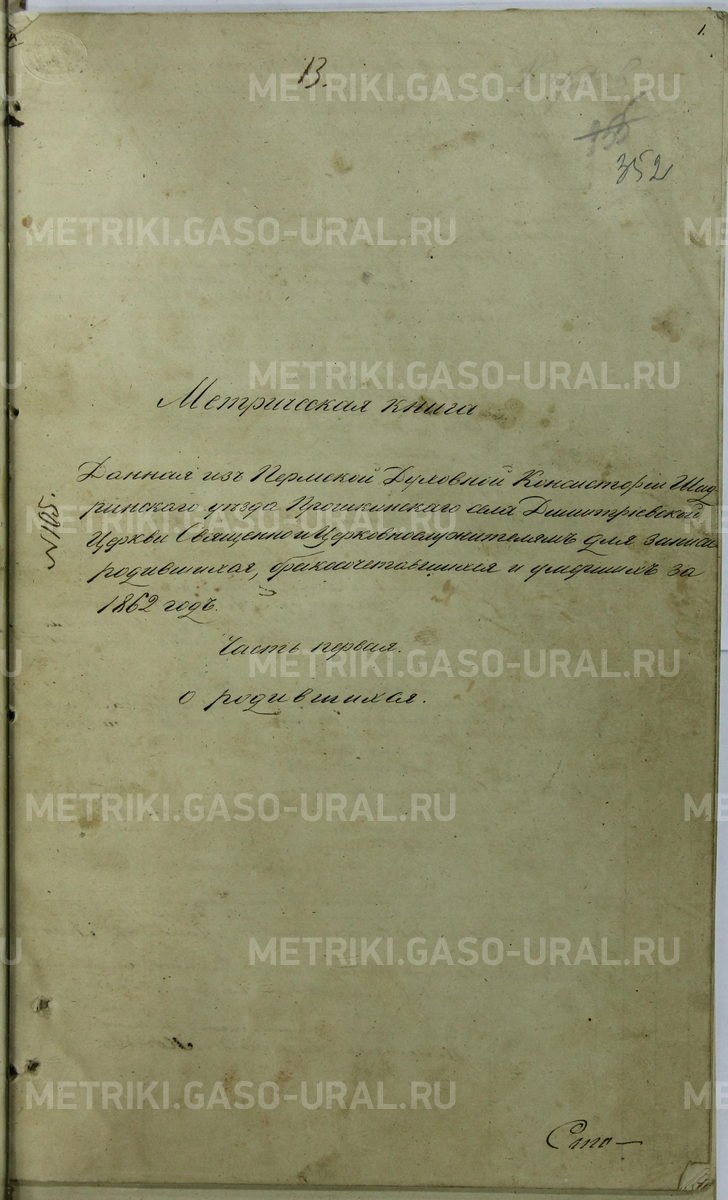 1.
13.
352
Метрическая книга
Данная изъ Пермской Духовной Консисторіи Шад-
ринскаго уѣзда Прошкинскаго села Димитріевской
Церкви Священно и Церковнослужителямъ для записи
родившихся, бракосочетавшихся и умершихъ за
1862 годъ.
№105.
Часть первая.
о родившихся.
Сто—
METRIKI.GASO-URAL.RU
METRIKI.GASO-URAL.RU
METRIKI.GASO-URAL.RU
METRIKI.GASO-URAL.RU
METRIKI.GASO-URAL.RU
METRIKI.GASO-URAL.RU
METRIKI.GASO-URAL.RU
METRIKI.GASO-URAL.RU